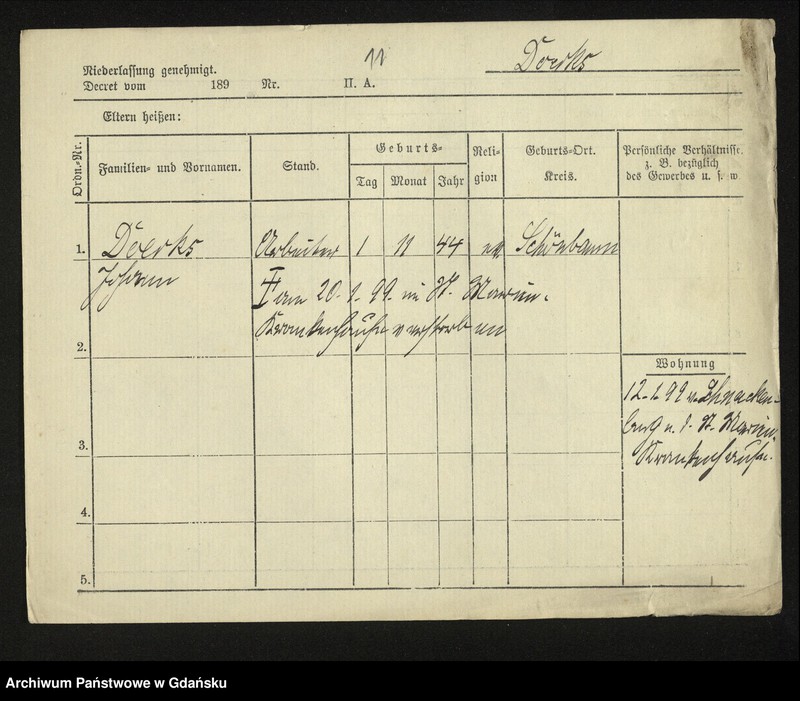 11
Doerks
Niederlassung genehmigt.
Decret vom 189 Nr. II. A.
Eltern heißen:
Ordn.-Nr.
Familien- und Vornamen.
Stand.
Geburts-
Tag Monat Jahr
Reli-
gion
Geburts-Ort.
Kreis.
Persönliche Verhältnisse,
z. B. bezüglich
des Gewerbes u. s. w
1. Doerks Arbeiter 1 11 44 ev Schönbaum
Johann
am 20. 1. 99. im St. Marien-
Krankenhause verstorben
2.
Wohnung
12. 1. 99 v. Schnacken-
burg n. d. St. Marien-
Krankenhause.
3.
4.
5.
Archiwum Państwowe w Gdańsku